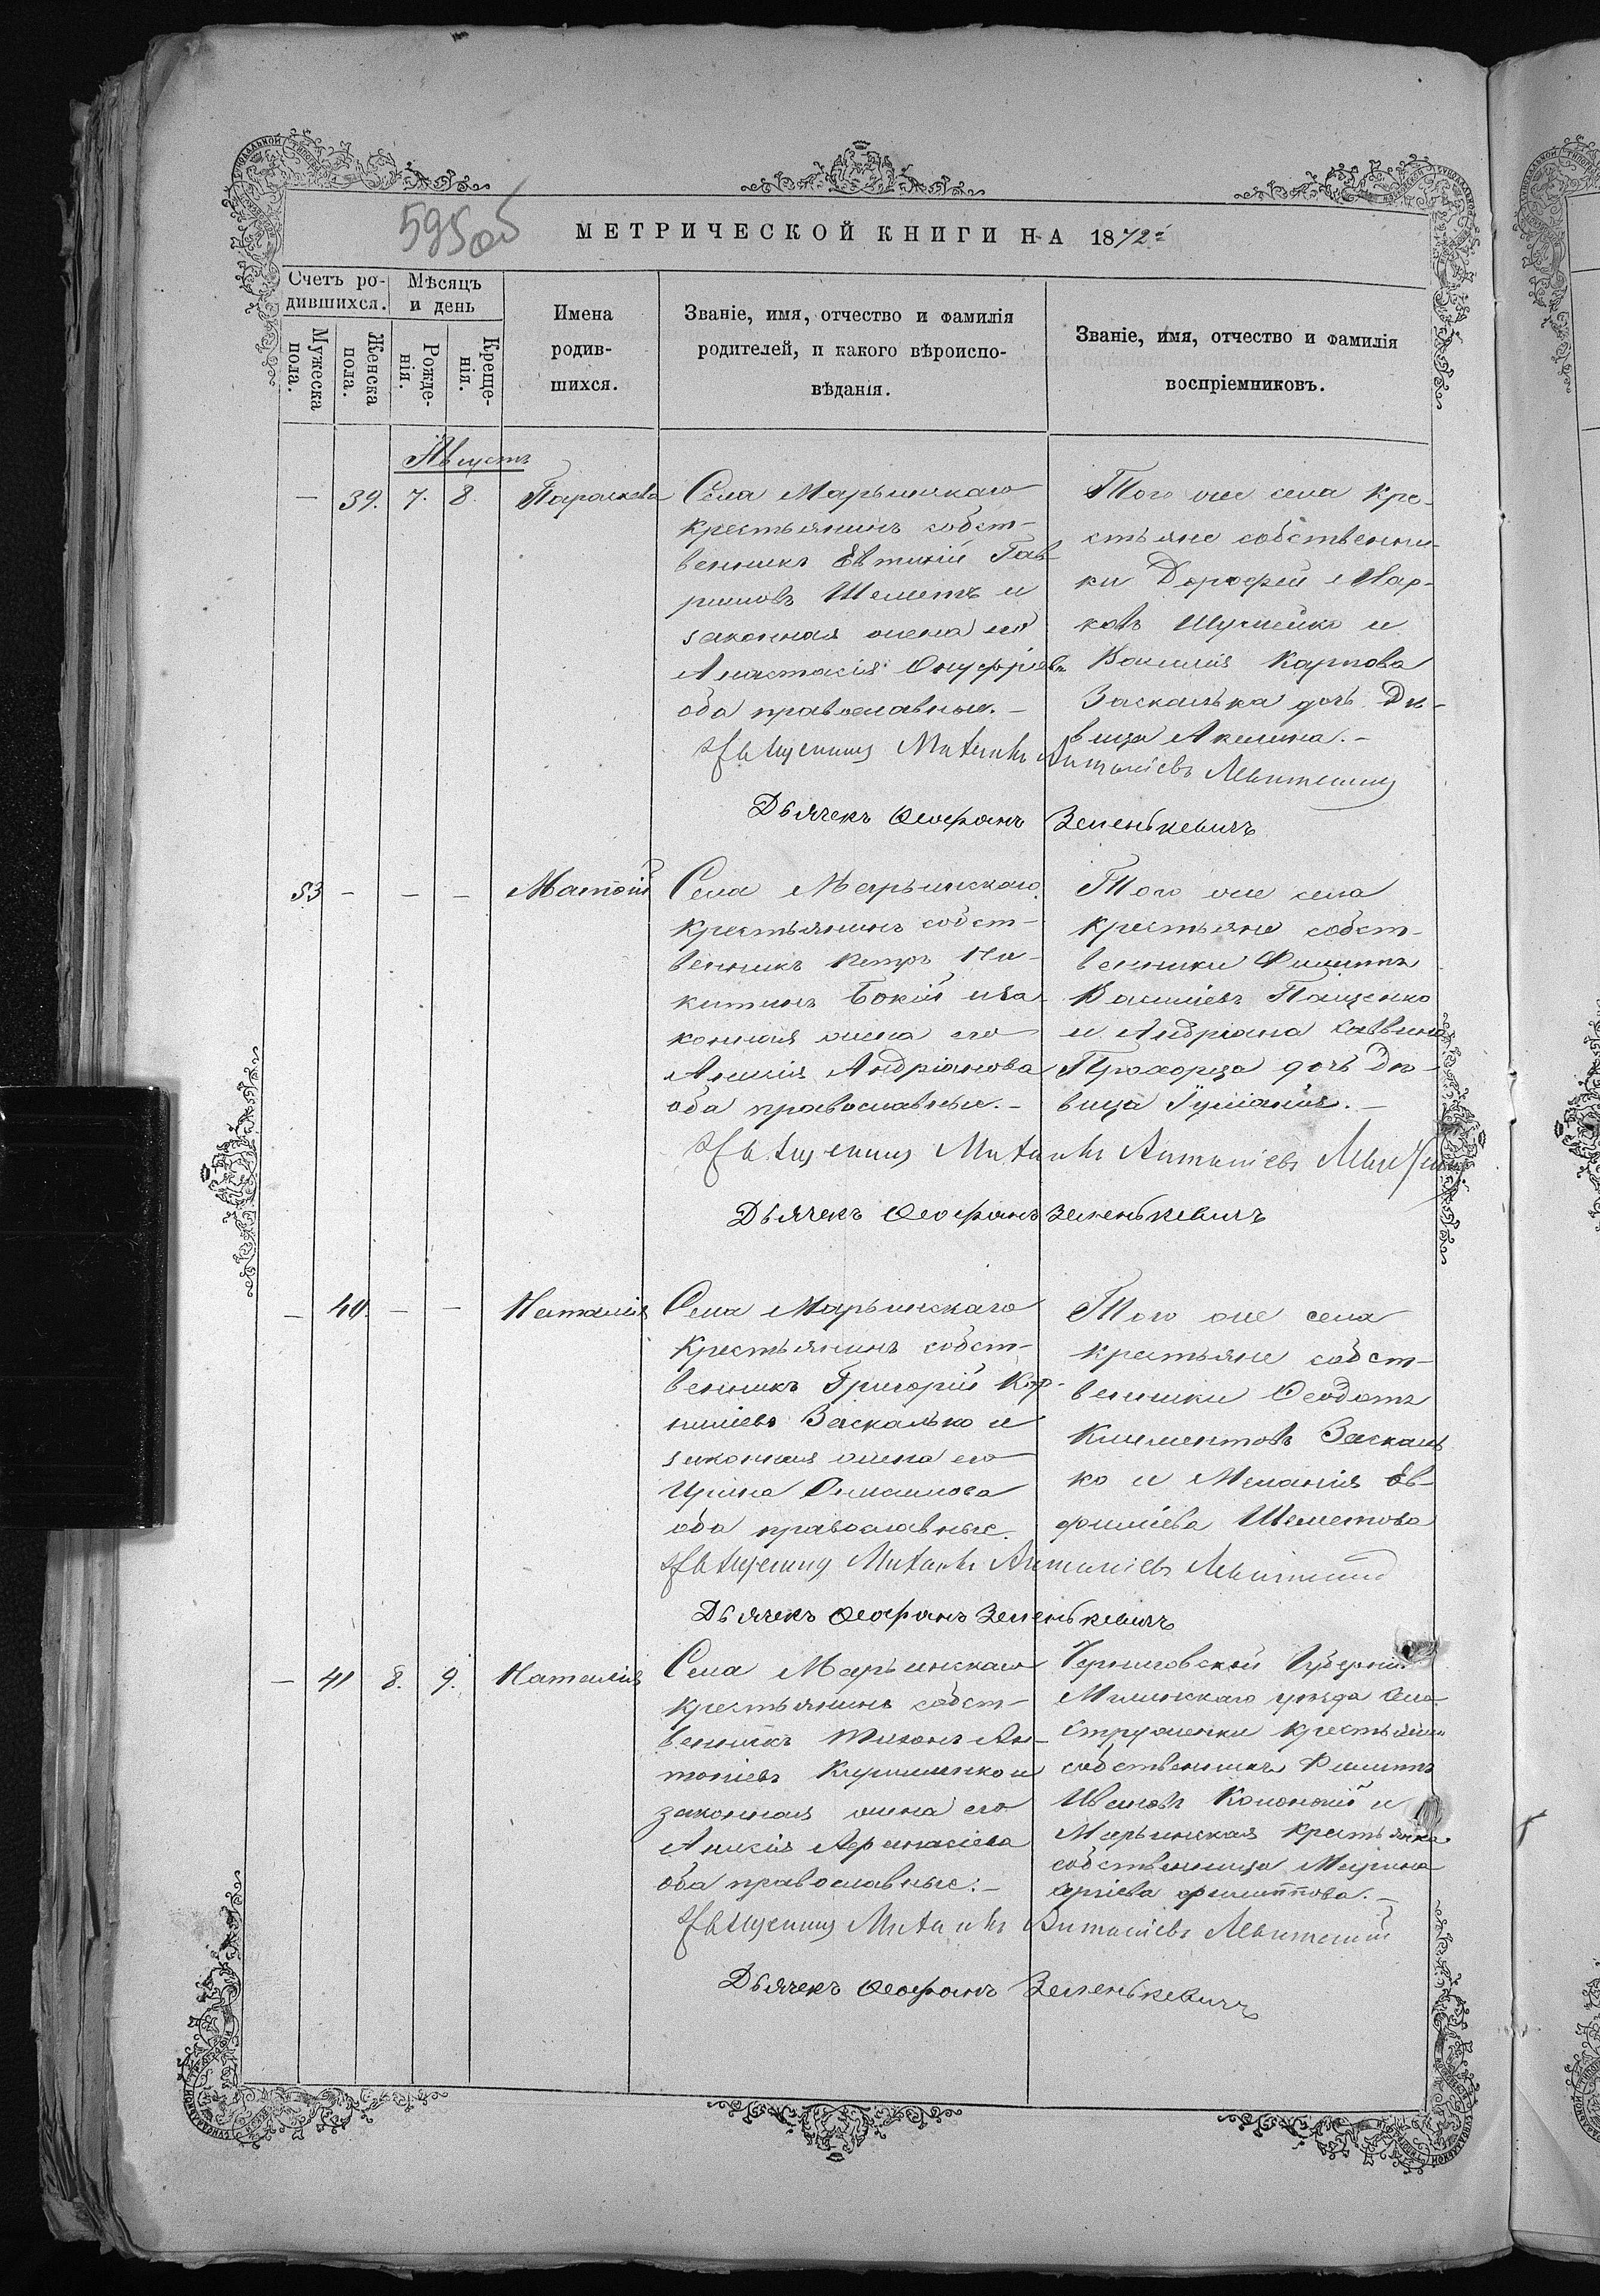 595об
МЕТРИЧЕСКОЙ КНИГИ НА 1872й
Счетъ ро-
дившихся.
Мѣсяцъ
и день
Мужеска
пола.
Женска
пола.
Рожде-
нія.
Креще-
нія.
Имена
родив-
шихся.
Званіе, имя, отчество и фамилія
родителей, и какого вѣроиспо-
вѣданія.
Званіе, имя, отчество и фамилія
воспріемниковъ.
Августъ
— 39. 7. 8. Параскева
Села Марьинскаго
крестьянинъ собст-
венникъ Евтихій Гав-
риловъ Шеметъ и
законная жена его
Анастасія Онуфріева
оба православные. —
Того же села кре-
стьяне собственни-
ки Дорофей Мар-
ковъ Шумейко и
Василія Карпова
Заскалька дочь Дѣ-
вица Акилина. —
Священникъ Михаилъ Антоніевъ Левитскій
Дьячекъ Ѳеофанъ Зеленькевичъ
53 — — — Матѳій
Села Марьинскаго
крестьянинъ собст-
венникъ Петръ Ни-
китинъ Бокій и за-
конная жена его
Анна Андріанова
оба православные. —
Того же села
крестьяне собст-
венники Филиппъ
Василіевъ Пащенко
и Андріана Саввина
Прохорца дочь Дѣ-
вица Іуліанія. —
Священникъ Михаилъ Антоніевъ Левитскій
Дьячекъ Ѳеофанъ Зеленькевичъ
— 40. — — Наталія
Села Марьинскаго
крестьянинъ собст-
венникъ Григорій Кор-
ниліевъ Заскалько и
законная жена его
Ирина
оба православные.
Того же села
крестьяне собст-
венники Ѳеодотъ
Климентовъ Заскаль-
ко и Меланія Ев-
фиміева Шеметова
Священникъ Михаилъ Антоніевъ Левитскій
Дьячекъ Ѳеофанъ Зеленькевичъ
— 41 8. 9. Наталія
Села Марьинскаго
крестьянинъ собст-
венникъ Тихонъ Ан-
тоніевъ Кириленко и
законная жена его
Аникія Афанасіева
оба православные. —
Черниговской Губерніи
Мглинскаго уѣзда села
крестьянинъ
собственникъ Филиппъ
Ивановъ и
Марьинская крестьянка
собственница Марина
Филиппова. —
Священникъ Михаилъ Антоніевъ Левитскій
Дьячекъ Ѳеофанъ Зеленькевичъ